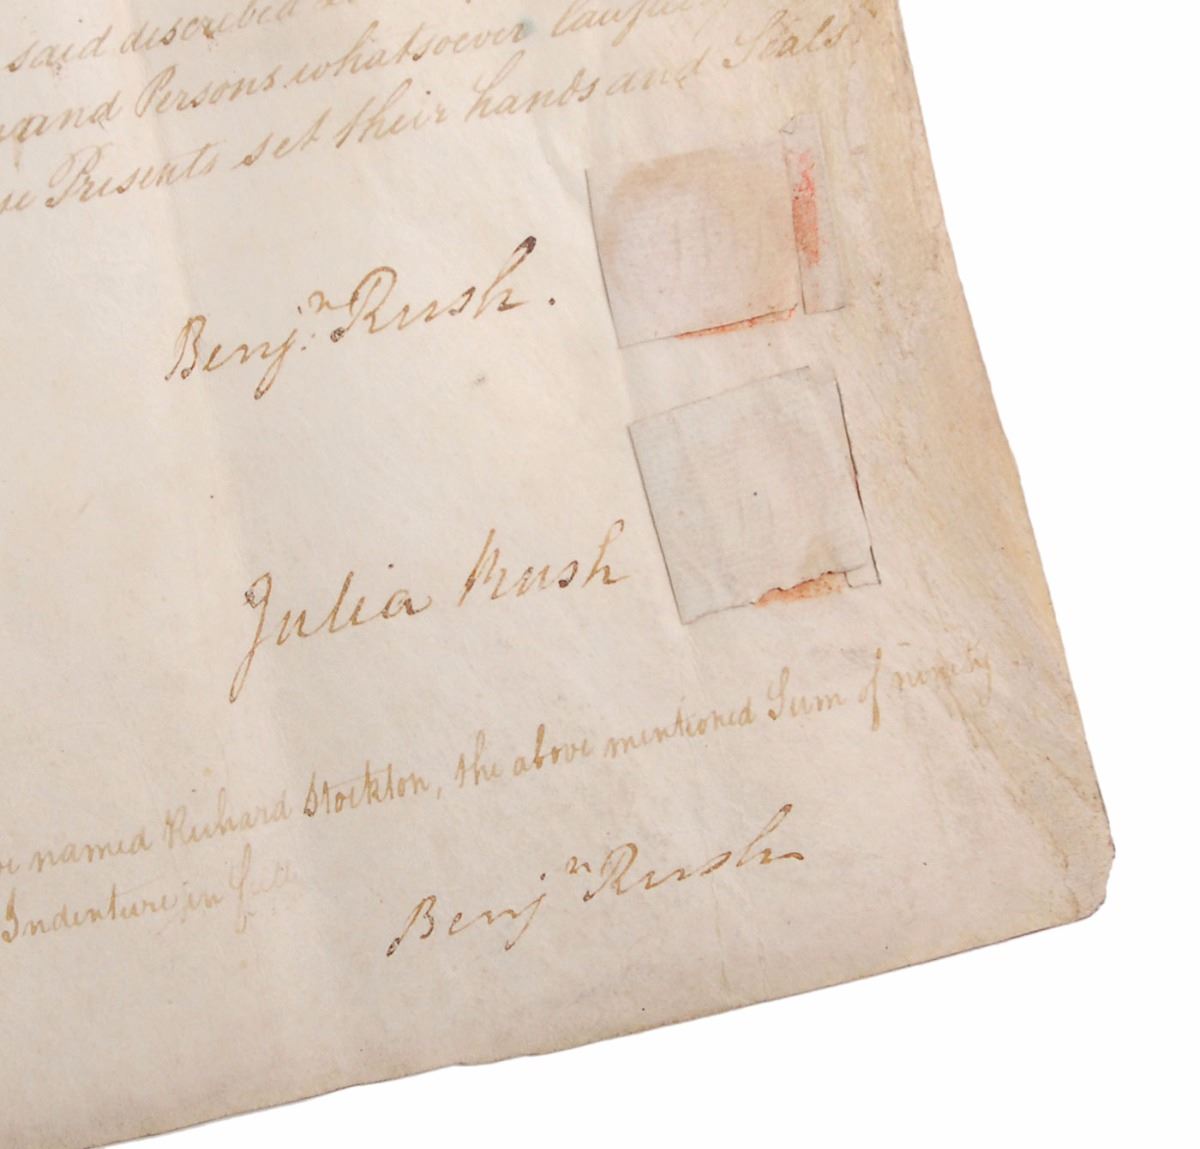 said described
and Persons whatsoever lawfully
Presents set their hands and Seals
Benj.n Rush.
Julia Rush
named Richard Stockton, the above mentioned Sum of ninety
Indenture in full
Benjn Rush